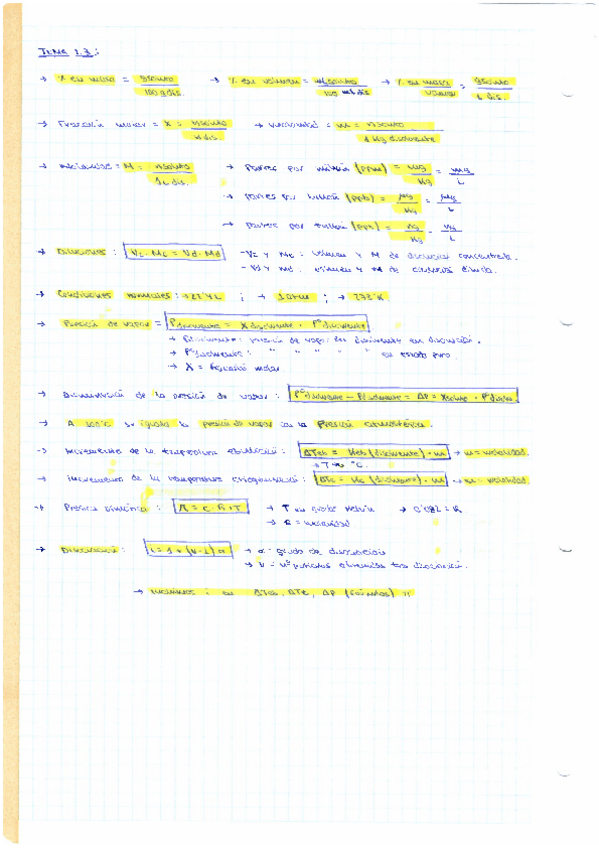 Tema 1.3:
→ % en masa = gsoluto / 100 g dis. → % en volumen = mLsoluto / 100 ml dis → % en masa / volumen = gsoluto / L dis.
→ Fracción molar = X = nsoluto / n dis. → molalidad = m = nsoluto / 1 kg disolvente
→ Molaridad = M = nsoluto / 1L dis. → Partes por millón (ppm) = mg / kg = mg / L
→ partes por billón (ppb) = μg / kg = μg / L
→ partes por trillón (ppt) = ng / kg = ng / L
→ Diluciones: Vc · Mc = Vd · Md - Vc y Mc: volumen y M de disolución concentrada.
- Vd y Md: volumen y M de diluida.
→ Condiciones normales: → 22'4 L ; → 1 atm ; → 273 K
→ Presión de vapor = Pdisolvente = Xdisolvente · Pºdisolvente
→ Pdisolvente: presión de vapor del disolvente en disolución.
→ Pºdisolvente: " " " " " en estado puro.
→ X = fracción molar
→ Disminución de la presión de vapor: Pºdisolvente - Pdisolvente = ΔP = Xsoluto · Pºdisolv
→ A 100ºC se iguala la presión de vapor con la presión atmosférica.
→ Incremento de la temperatura ebullición: ΔTeb = Keb (disolvente) · m → m = molalidad.
→ T en ºC.
→ Incremento de la temperatura crioscópica: ΔTc = Kc (disolvente) · m → m = molalidad.
→ Presión osmótica: π = c · R · T → T en grados Kelvin → 0'082 = R
→ c = molaridad
→ Disociación: i = 1 + (ν - 1) α → α = grado de disociación
→ ν = nº partículas obtenidas tras disociación.
→ Incluimos i en ΔTeb, ΔTc, ΔP (fórmulas)